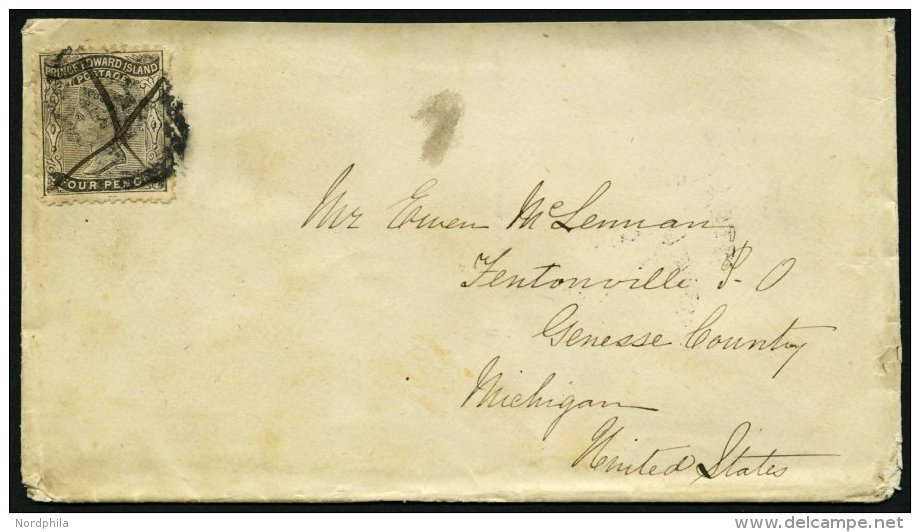 PRINCE EDWARD ISLAND
POSTAGE
FOUR PENCE
Mr Ewen McLennan
Fentonville P-O
Genesse County
Michigan
United States
Nordphila
delcampe.net